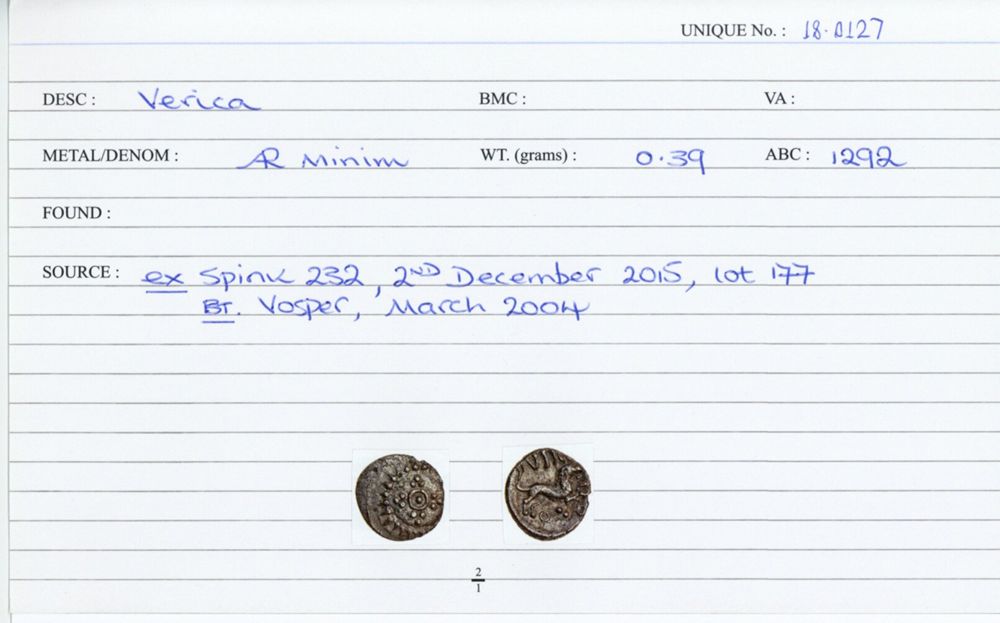 UNIQUE No. : 18.0127
DESC : Verica BMC : VA :
METAL/DENOM : AR Minim WT. (grams) : 0.39 ABC : 1292
FOUND :
SOURCE : ex Spink 232, 2ND December 2015, lot 177
BT. Vosper, March 2004
2
1